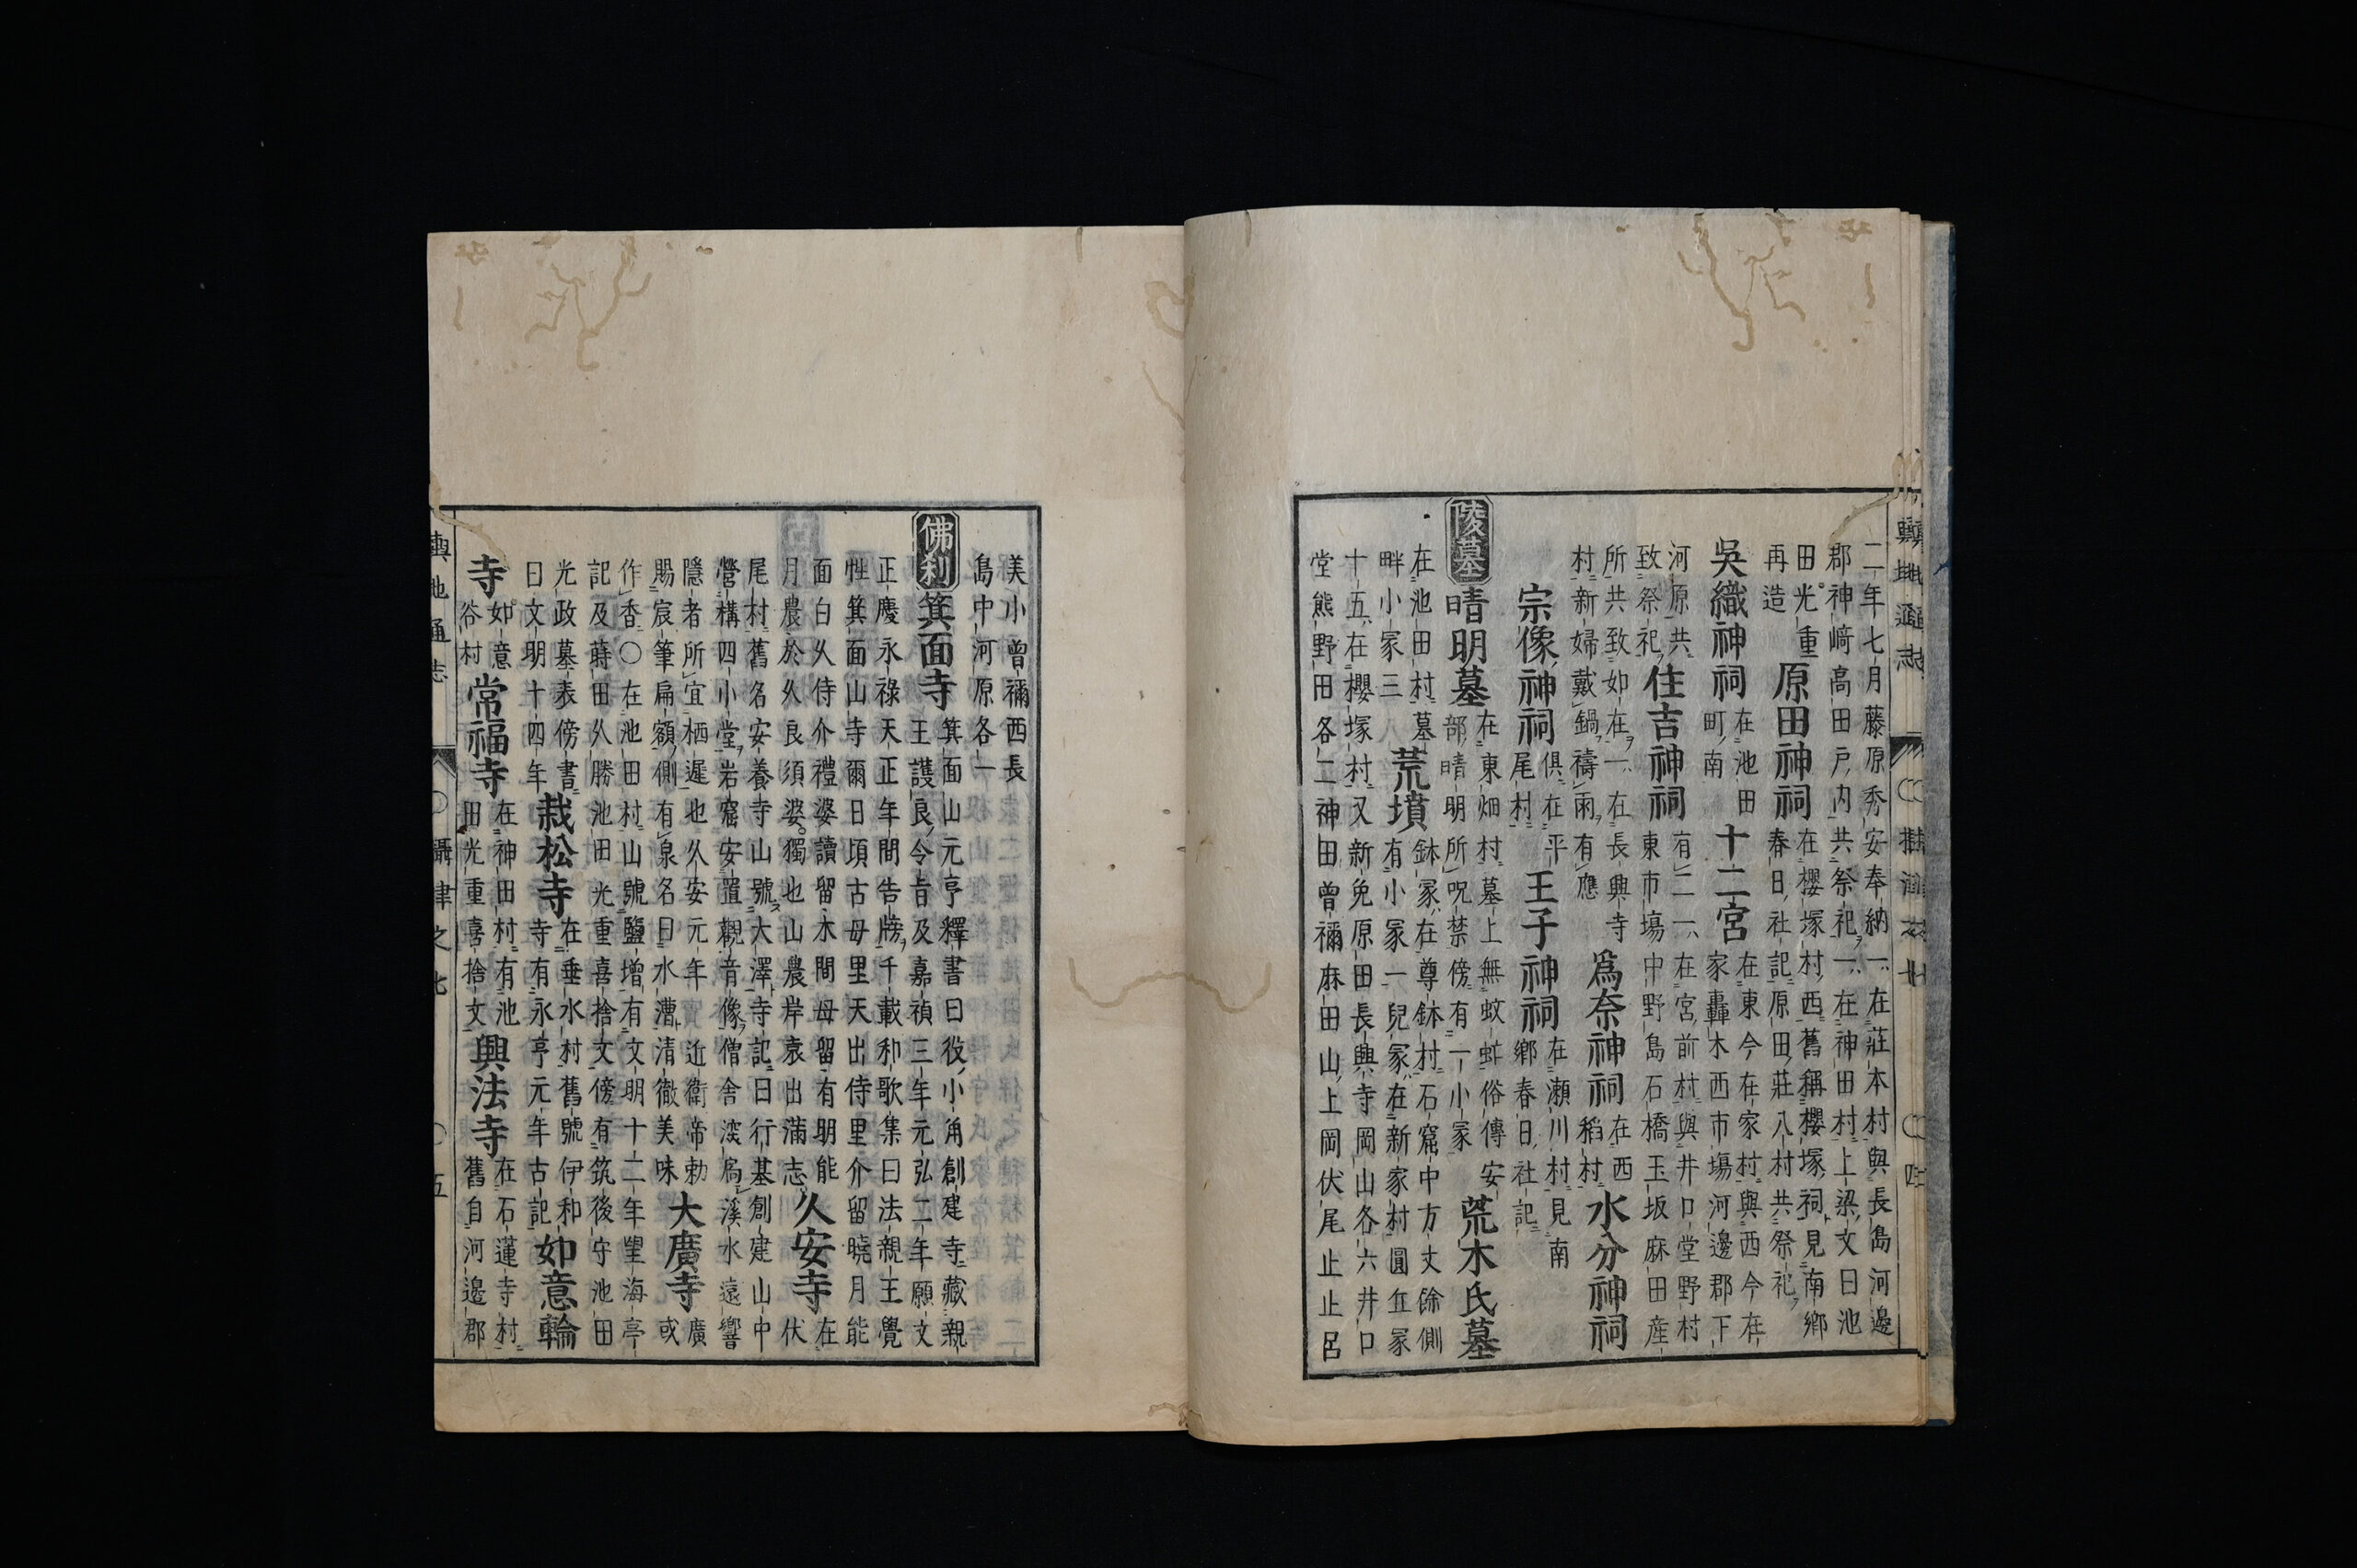 二年七月藤原秀安奉納一在莊本村與長島河邊
郡神﨑高田戸內共祭祀一在神田村上梁文曰池
田光重
再造
原田神祠
在櫻塚村西舊稱櫻塚祠見南鄉
春日社記原田莊八村共祭祀
吳織神祠
在池田
町南
十二宮
在東今在家村與西今在
家轟木西市塲河邊郡下
河原共
致祭祀
住吉神祠
有二一在宮前村與井口堂野村
東市塲中野島石橋玉坂麻田産
所共致如在一在長興寺
村新婦戴鍋禱雨有應
爲奈神祠
在西
稻村
水分神祠
宗像神祠
俱在平
尾村
王子神祠
在瀨川村見南
鄉春日社記
陵墓
晴明墓
在東畑村墓上無蚊蚌俗傳安
部晴明所呪禁傍有一小冢
荒木氏墓
在池田村墓
畔小冢三
荒墳
鉢冢在尊鉢村石窟中方丈餘側
有小冢一兒冢在新家村圓丘冢
十五在櫻塚村又新免原田長興寺岡山各六井口
堂熊野田各二神田曾禰麻田山上岡伏尾止止呂
美小曾禰西長
島中河原各一
佛刹
箕面寺
箕面山元亨釋書曰役小角創建寺藏親
王護良令旨及嘉禎三年元弘二年願文
正慶永祿天正年間告牓千載和歌集曰法親王覺
性箕面山寺爾日頃古毋里天出侍里介留曉月能
面白久侍介禮婆讀留木間毋留有明能
月農於久良須婆獨也山農岸哀出滿志
久安寺
在
伏
尾村舊名安養寺山號大澤寺記曰行基創建山中
營構四小堂岩窟安置觀音像僧舍淡扃溪水遠響
隱者所宜栖遲也久安元年近衛帝勅
賜宸筆扁額側有泉名曰水漕清徹美味
大廣寺
廣
或
作香○在池田村山號鹽增有文明十二年望海亭
記及蒔田久勝池田光重喜捨文傍有筑後守池田
光政墓表傍書
曰文明十四年
栽松寺
在垂水村舊號伊和
寺有永亨元年古記
如意輪
寺
如意
谷村
常福寺
在神田村有池
田光重喜捨文
興法寺
在石蓮寺村
舊自河邊郡
輿地通志
攝津之七
五